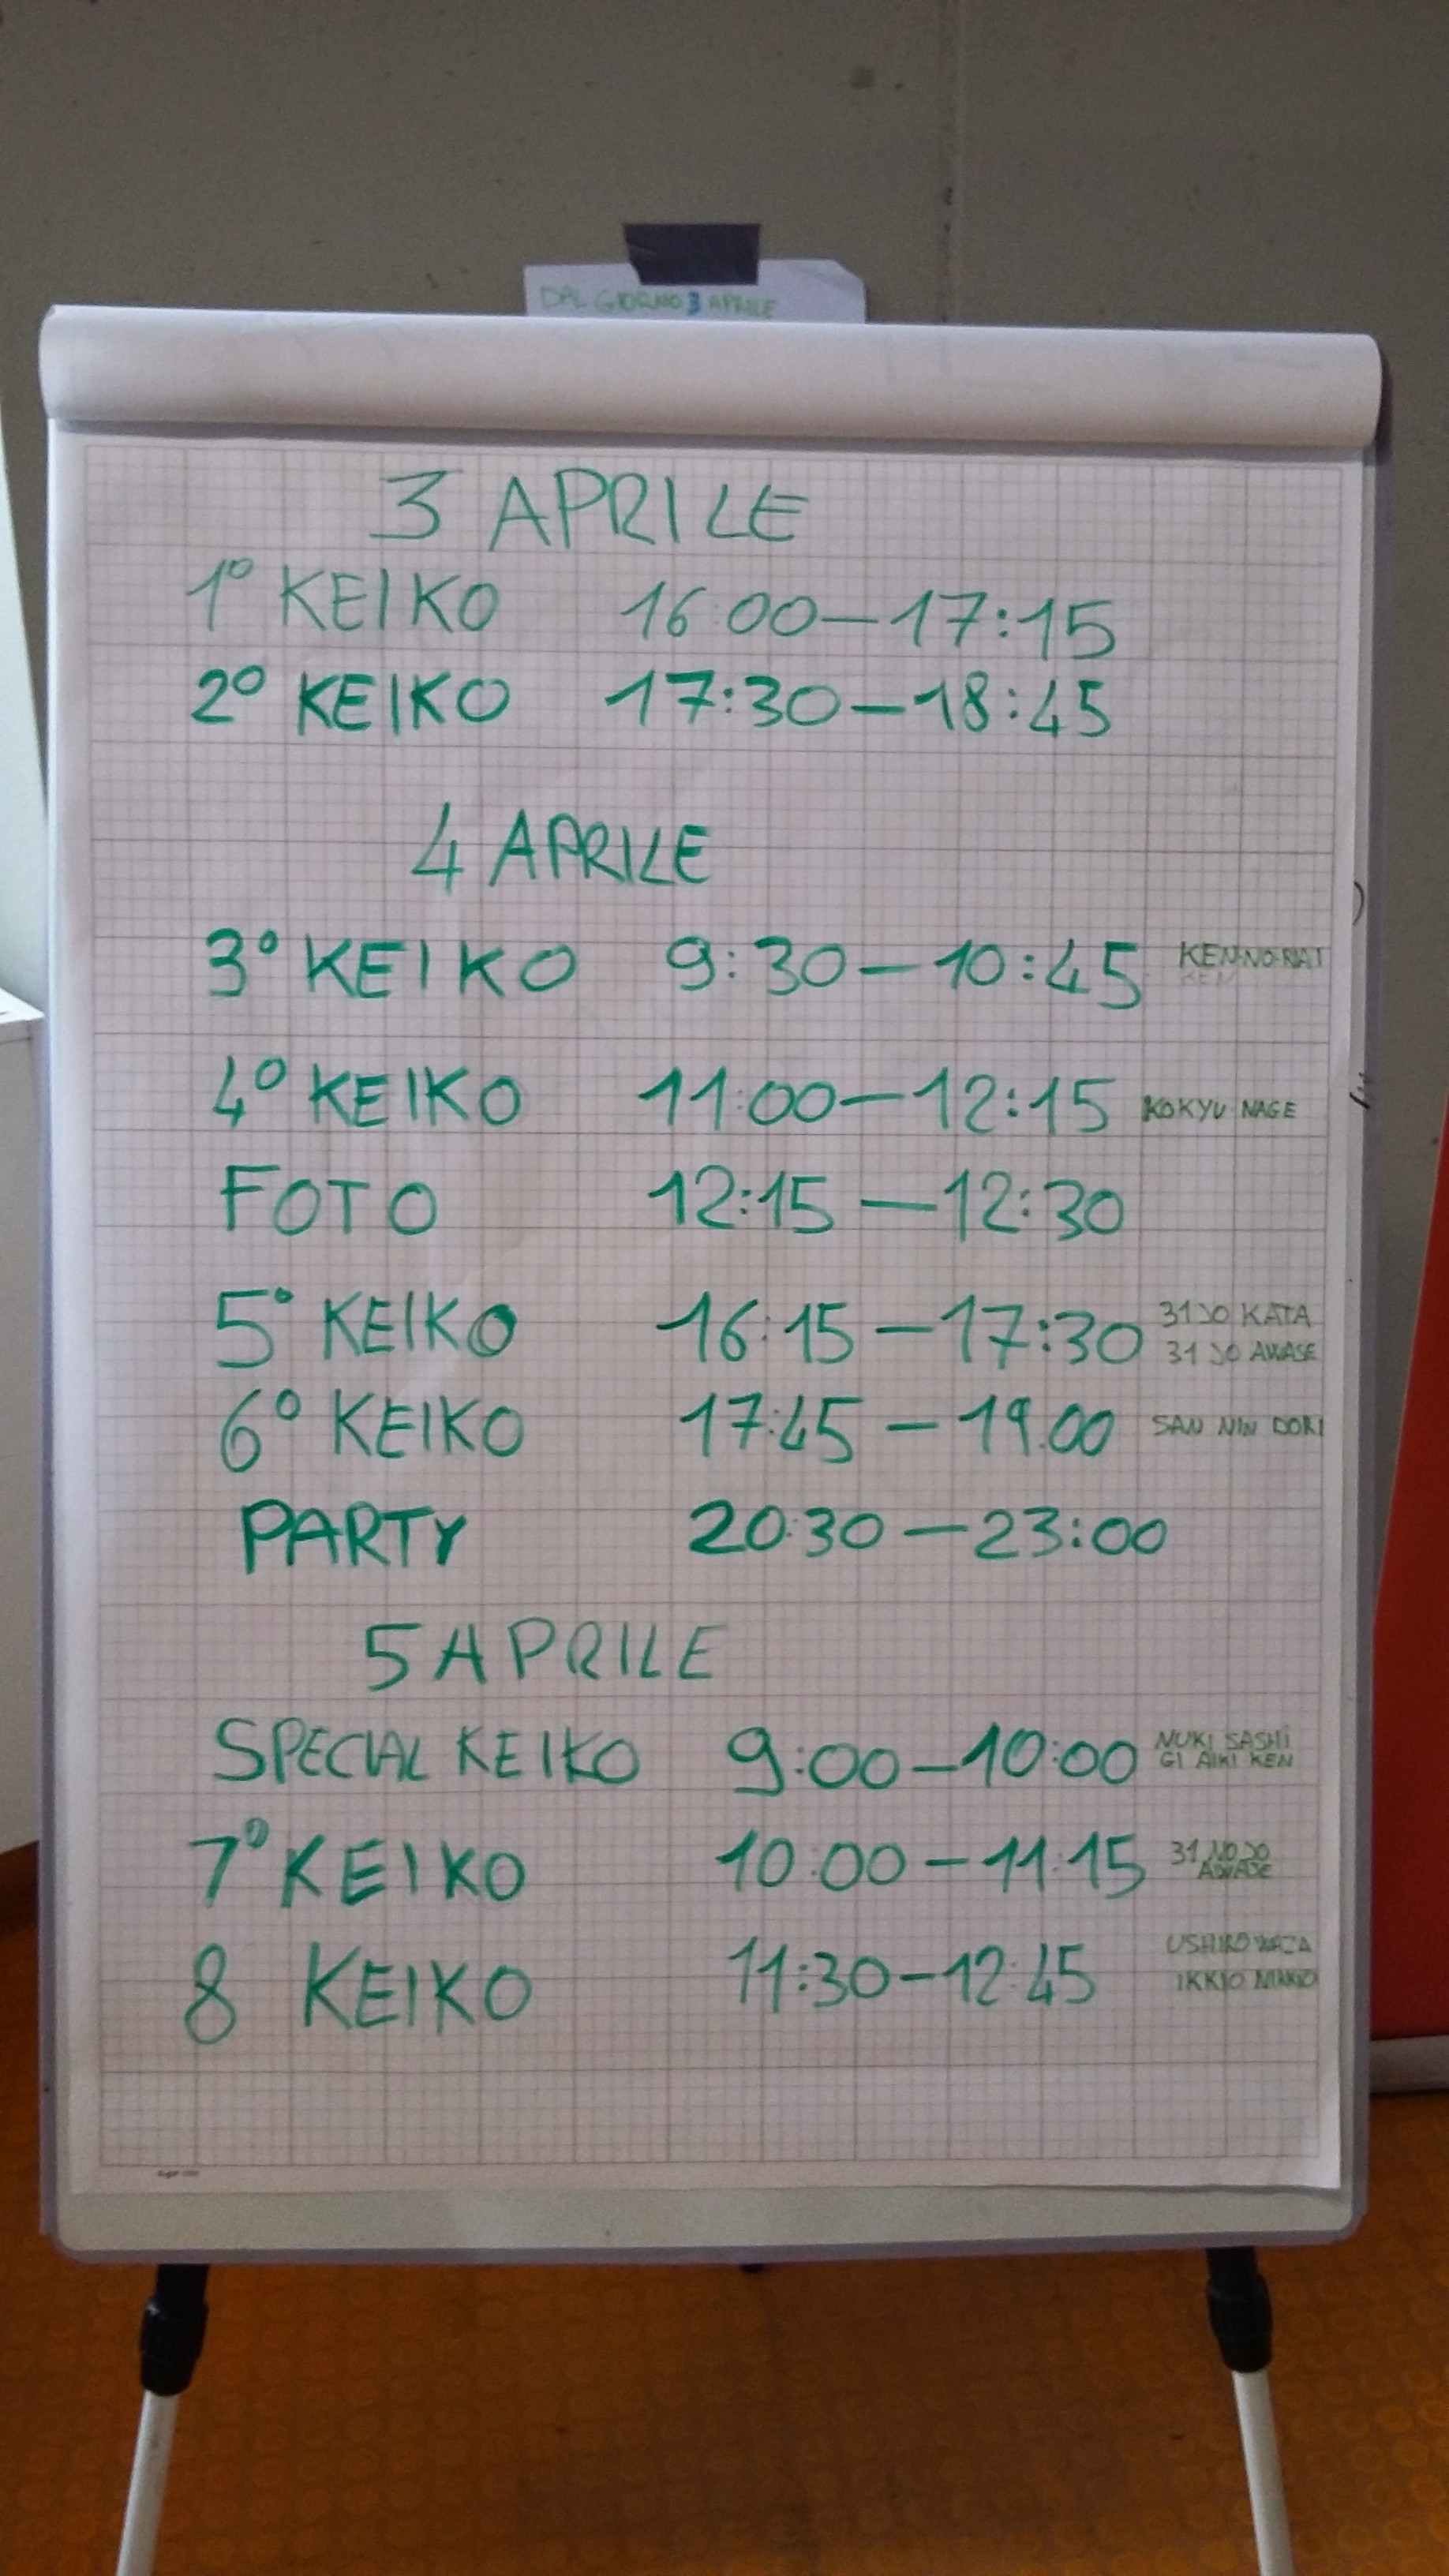 DAL GIORNO 3 APRILE
3 APRILE
1° KEIKO 16:00—17:15
2° KEIKO 17:30—18:45
4 APRILE
3° KEIKO 9:30—10:45 KEN-NO-RIAI
KEN
4° KEIKO 11:00—12:15 KOKYU NAGE
FOTO 12:15—12:30
5° KEIKO 16:15—17:30 31 JO KATA
31 JO AWASE
6° KEIKO 17:45—19.00 SAN NIN DORI
PARTY 20:30—23:00
5 APRILE
SPECIAL KEIKO 9:00—10:00 NUKI SASHI
GI AIKI KEN
7° KEIKO 10:00—11:15 31 NO JO
AWASE
8 KEIKO 11:30—12:45 USHIRO WAZA
IKKIO NIKKIO